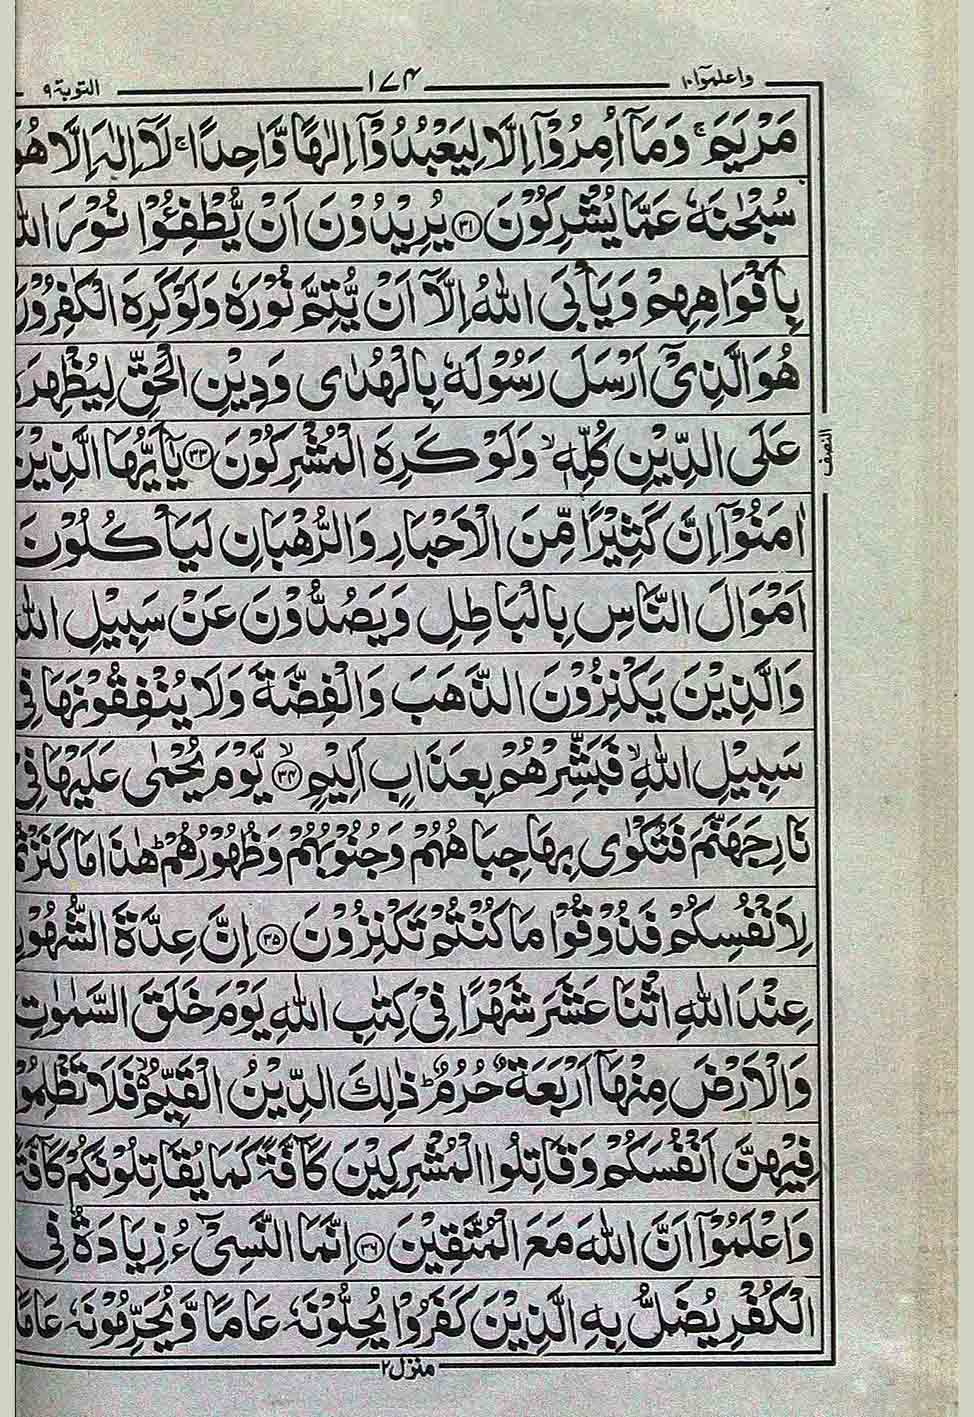 واعلموٓا ١٠ ١٧٤ التوبة ٩
مَرْيَمَ ۚ وَمَآ اُمِرُوْٓا اِلَّا لِيَعْبُدُوْٓا اِلٰهًا وَّاحِدًا ۚ لَآ اِلٰهَ اِلَّا هُوَ
سُبْحٰنَهٗ عَمَّا يُشْرِكُوْنَ ۝٣١ يُرِيْدُوْنَ اَنْ يُّطْفِـُٔوْا نُوْرَ اللّٰهِ
بِاَفْوَاهِهِمْ وَيَاْبَى اللّٰهُ اِلَّآ اَنْ يُّتِمَّ نُوْرَهٗ وَلَوْ كَرِهَ الْكٰفِرُوْنَ
هُوَ الَّذِىْٓ اَرْسَلَ رَسُوْلَهٗ بِالْهُدٰى وَدِيْنِ الْحَقِّ لِيُظْهِرَهٗ
عَلَى الدِّيْنِ كُلِّهٖ ۙ وَلَوْ كَرِهَ الْمُشْرِكُوْنَ ۝٣٣ يٰٓاَيُّهَا الَّذِيْنَ
النصف
اٰمَنُوْٓا اِنَّ كَثِيْرًا مِّنَ الْاَحْبَارِ وَالرُّهْبَانِ لَيَاْكُلُوْنَ
اَمْوَالَ النَّاسِ بِالْبَاطِلِ وَيَصُدُّوْنَ عَنْ سَبِيْلِ اللّٰهِ
وَالَّذِيْنَ يَكْنِزُوْنَ الذَّهَبَ وَالْفِضَّةَ وَلَا يُنْفِقُوْنَهَا فِىْ
سَبِيْلِ اللّٰهِ ۙ فَبَشِّرْهُمْ بِعَذَابٍ اَلِيْمٍ ۙ۝٣٤ يَّوْمَ يُحْمٰى عَلَيْهَا فِىْ
نَارِ جَهَنَّمَ فَتُكْوٰى بِهَا جِبَاهُهُمْ وَجُنُوْبُهُمْ وَظُهُوْرُهُمْ ؕ هٰذَا مَا كَنَزْتُمْ
لِاَنْفُسِكُمْ فَذُوْقُوْا مَا كُنْتُمْ تَكْنِزُوْنَ ۝٣٥ اِنَّ عِدَّةَ الشُّهُوْرِ
عِنْدَ اللّٰهِ اثْنَا عَشَرَ شَهْرًا فِىْ كِتٰبِ اللّٰهِ يَوْمَ خَلَقَ السَّمٰوٰتِ
وَالْاَرْضَ مِنْهَآ اَرْبَعَةٌ حُرُمٌ ؕ ذٰلِكَ الدِّيْنُ الْقَيِّمُ ۙ فَلَا تَظْلِمُوْا
فِيْهِنَّ اَنْفُسَكُمْ وَقَاتِلُوا الْمُشْرِكِيْنَ كَآفَّةً كَمَا يُقَاتِلُوْنَكُمْ كَآفَّةً
وَاعْلَمُوْٓا اَنَّ اللّٰهَ مَعَ الْمُتَّقِيْنَ ۝٣٦ اِنَّمَا النَّسِىْٓءُ زِيَادَةٌ فِى
الْكُفْرِ يُضَلُّ بِهِ الَّذِيْنَ كَفَرُوْا يُحِلُّوْنَهٗ عَامًا وَّيُحَرِّمُوْنَهٗ عَامًا
منزل ٢